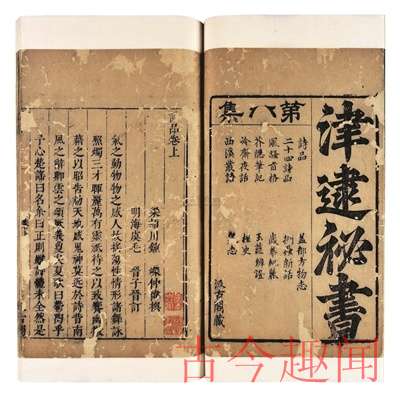 第八集
津逮祕書
詩品
二十四詩品
風騷旨格
芥隱筆記
冷齋夜話
西溪叢語
益部方物志
捫蝨新話
歲華紀麗
玉蕊辨證
汲古閣藏
品卷上
梁 川鍾嶸仲偉撰
明海虞毛晉子晉訂
氣之動物物之感人故搖蕩性情形諸舞詠
照燭三才輝麗萬有靈祇待之以致饗幽微
藉之以昭告動天地感鬼神莫近於詩昔南
風之辭卿雲之頌厥義夐矣夏歌曰鬱陶乎
予心楚謠曰名余曰正則雖詩體未全然是
古今趣闻